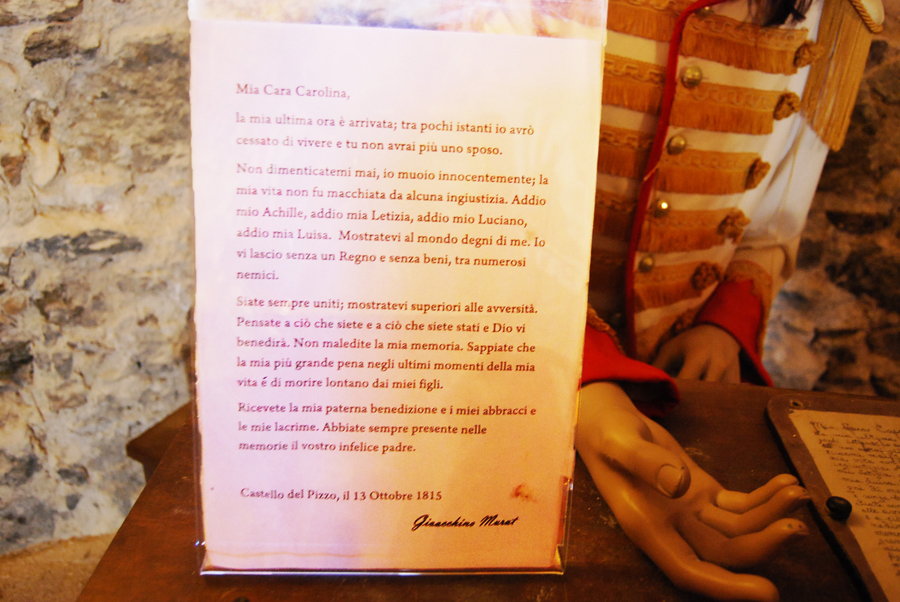 Mia Cara Carolina,
la mia ultima ora è arrivata; tra pochi istanti io avrò
cessato di vivere e tu non avrai più uno sposo.
Non dimenticatemi mai, io muoio innocentemente; la
mia vita non fu macchiata da alcuna ingiustizia. Addio
mio Achille, addio mia Letizia, addio mio Luciano,
addio mia Luisa. Mostratevi al mondo degni di me. Io
vi lascio senza un Regno e senza beni, tra numerosi
nemici.
Siate sempre uniti; mostratevi superiori alle avversità.
Pensate a ciò che siete e a ciò che siete stati e Dio vi
benedirà. Non maledite la mia memoria. Sappiate che
la mia più grande pena negli ultimi momenti della mia
vita é di morire lontano dai miei figli.
Ricevete la mia paterna benedizione e i miei abbracci e
le mie lacrime. Abbiate sempre presente nelle
memorie il vostro infelice padre.
Castello del Pizzo, il 13 Ottobre 1815
Gioacchino Murat